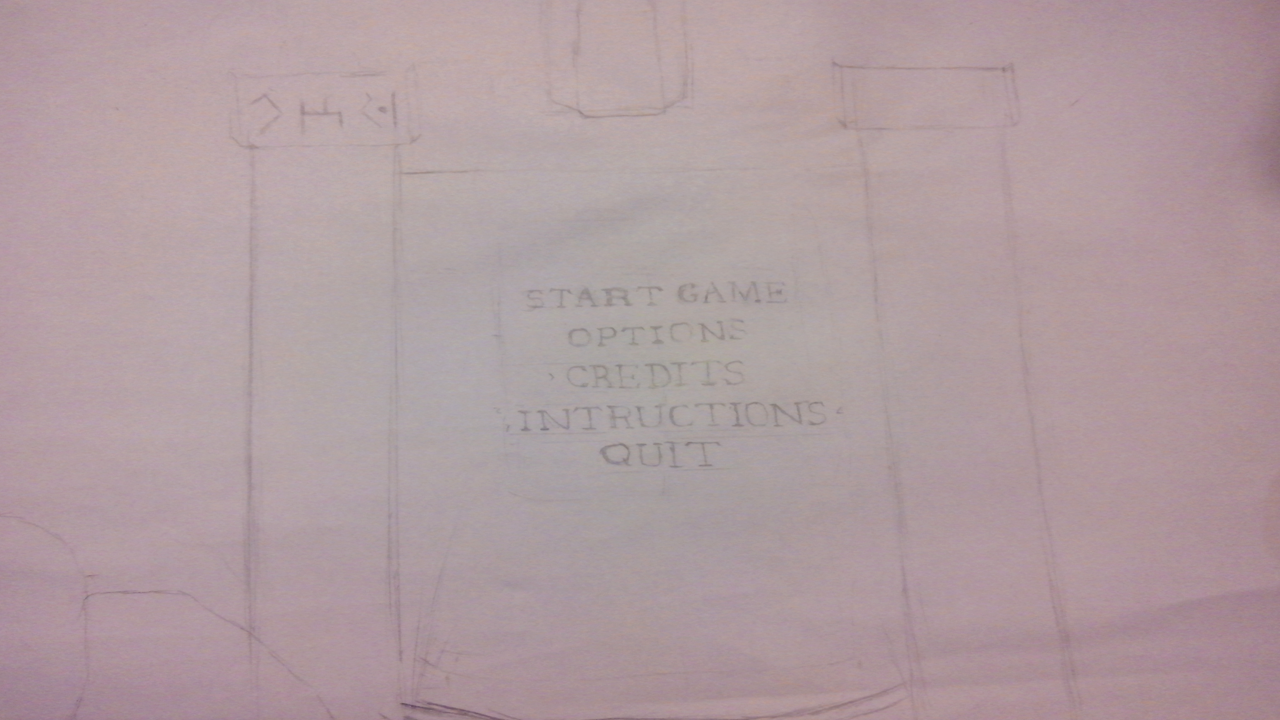 START GAME
OPTIONS
CREDITS
INTRUCTIONS
QUIT